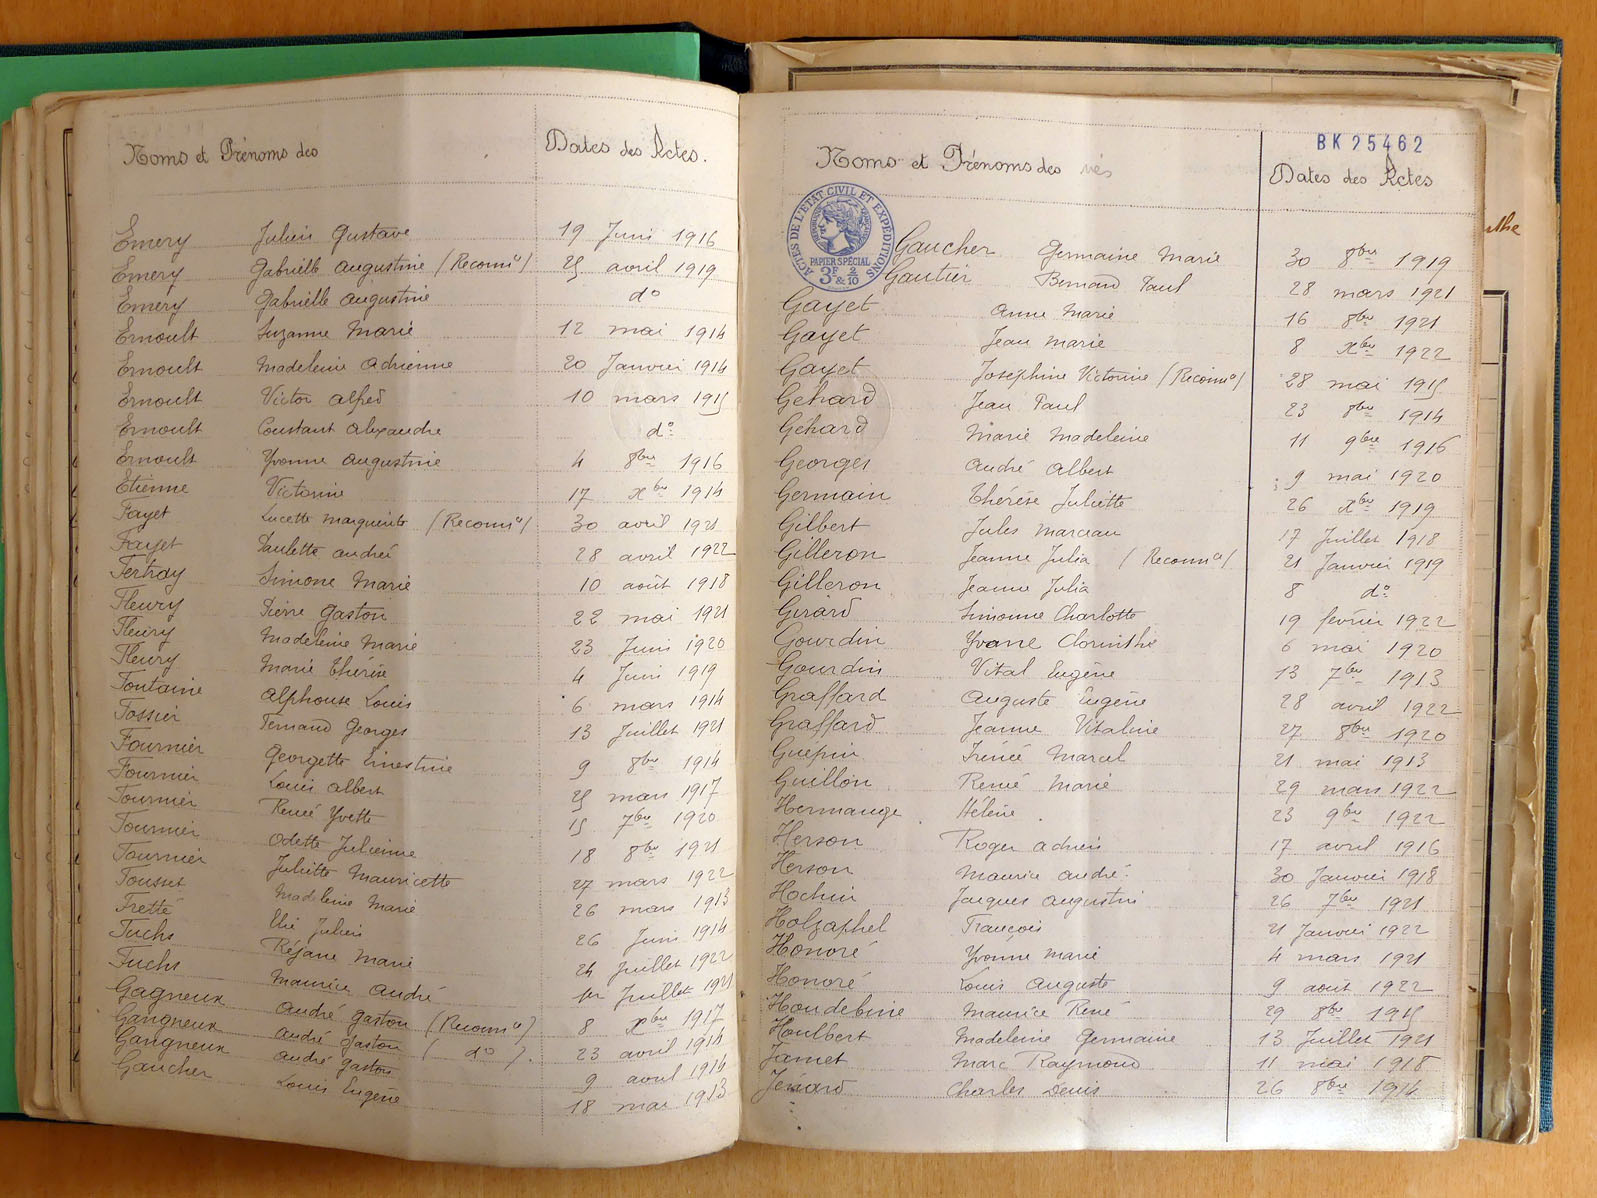 Noms et Prénoms des
Dates des Actes.
Emery Julien Gustave 19 Juin 1916
Emery Gabrielle Augustine (Reconn^ce) 25 avril 1919
Emery Gabrielle Augustine d°
Ernoult Suzanne Marie 12 mai 1914
Ernoult Madeleine Adrienne 20 Janvier 1914
Ernoult Victor Alfred 10 mars 1915
Ernoult Constant Alexandre d°
Ernoult Yvonne Augustine 4 8bre 1916
Etienne Victorine 17 Xbre 1914
Fayet Lucette Marguerite (Reconn^ce) 30 avril 1921
Fayet Paulette André 28 avril 1922
Ferhdy Simone Marie 10 août 1918
Fleury Pierre Gaston 22 mai 1921
Fleury Madeleine Marie 23 Juin 1920
Fleury Marie Thérèse 4 Juin 1919
Fontaine Alphonse Louis 6 mars 1914
Fossier Fernand Georges 13 Juillet 1921
Fournier Georgette Ernestine 9 8bre 1914
Fournier Louis Albert 25 mars 1917
Fournier Renée Yvette 15 7bre 1920
Fournier Odette Julienne 18 8bre 1921
Fournier Juliette Mauricette 27 mars 1922
Fousset Madeleine Marie 26 mars 1913
Fretté Elie Julien 26 Juin 1914
Fuchs Réjane Marie 24 Juillet 1922
Fuchs Maurice André 1er Juillet 1921
Gagneux André Gaston (Reconn^ce) 8 Xbre 1917
Gangneux André Gaston (d°). 23 avril 1914
Gangneux André Gaston 9 avril 1914
Gaucher Louis Eugène 18 mai 1913
BK 25462
Noms et Prénoms des nés
Dates des Actes
ACTES DE L'ETAT CIVIL ET EXPEDITIONS
PAPIER SPECIAL
3F & 2/10
Gaucher Germaine Marie 30 8bre 1919
Gautier Bernard Paul 28 mars 1921
Gayet Anne Marie 16 8bre 1921
Gayet Jean Marie 8 Xbre 1922
Gayet Joséphine Victorine (Reconn^ce) 28 mai 1915
Gehard Jean Paul 23 8bre 1914
Gehard Marie Madeleine 11 9bre 1916
Georges André Albert 9 mai 1920
Germain Thérèse Juliette 26 Xbre 1919
Gilbert Jules Marceau 17 Juillet 1918
Gilleron Jeanne Julia (Reconn^ce) 21 Janvier 1919
Gilleron Jeanne Julia 8 d°
Girard Simonne Charlotte 19 février 1922
Gourdin Yvonne Clorinthe 6 mai 1920
Gourdin Vital Eugène 13 7bre 1913
Graffard Auguste Eugène 28 avril 1922
Graffard Jeanne Vitaline 27 8bre 1920
Guépin Irénée Marcel 21 mai 1913
Guillon René Marie 29 mars 1922
Hermange Hélène 23 9bre 1922
Herson Roger Adrien 17 avril 1916
Herson Maurice André 30 Janvier 1918
Hochin Jacques Augustin 26 7bre 1921
Holzaphel François 21 Janvier 1922
Honoré Yvonne Marie 4 mars 1921
Honoré Louis Auguste 9 août 1922
Houdebine Maurice René 29 8bre 1915
Houlbert Madeleine Germaine 13 Juillet 1921
Jamet Marc Raymond 11 mai 1918
Jenard Charles Denis 26 8bre 1914